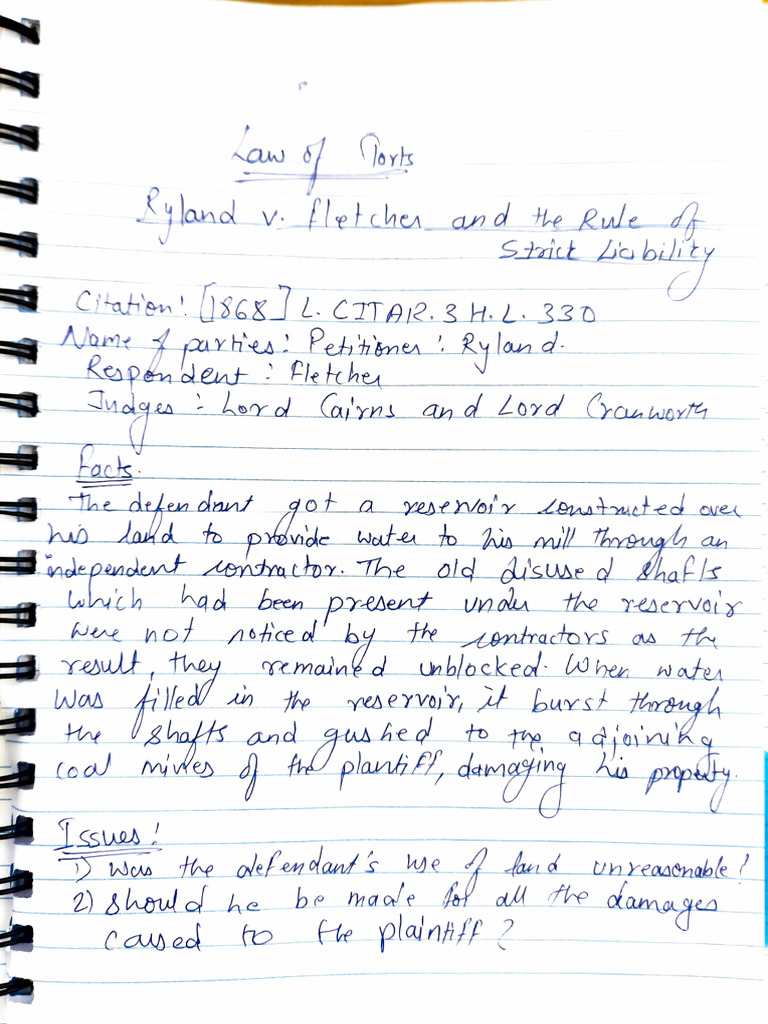 Law of Torts
Ryland v. Fletcher and the Rule of
Strict Liability
Citation: [1868] L. CITAR. 3 H. L. 330
Name of parties: Petitioner: Ryland.
Respondent: Fletcher
Judges: Lord Cairns and Lord Cranworth
Facts.
The defendant got a reservoir constructed over
his land to provide water to his mill through an
independent contractor. The old disused shafts
which had been present under the reservoir
were not noticed by the contractors as the
result, they remained unblocked. When water
was filled in the reservoir, it burst through
the shafts and gushed to the adjoining
coal mines of the plantiff, damaging his property.
Issues!
1) Was the defendant's use of land unreasonable?
2) Should he be made for all the damages
caused to the plaintiff?